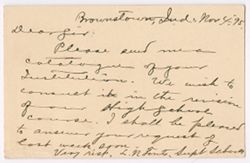 Brownstown, Ind. Nov 4, '95
Dear Sir:
Please send me a
catalogue of your
Institution. We wish to
consult it in the revision
of our High School
course. I shall be pleased
to answer your request of
last week soon.
Very resp., Supt School